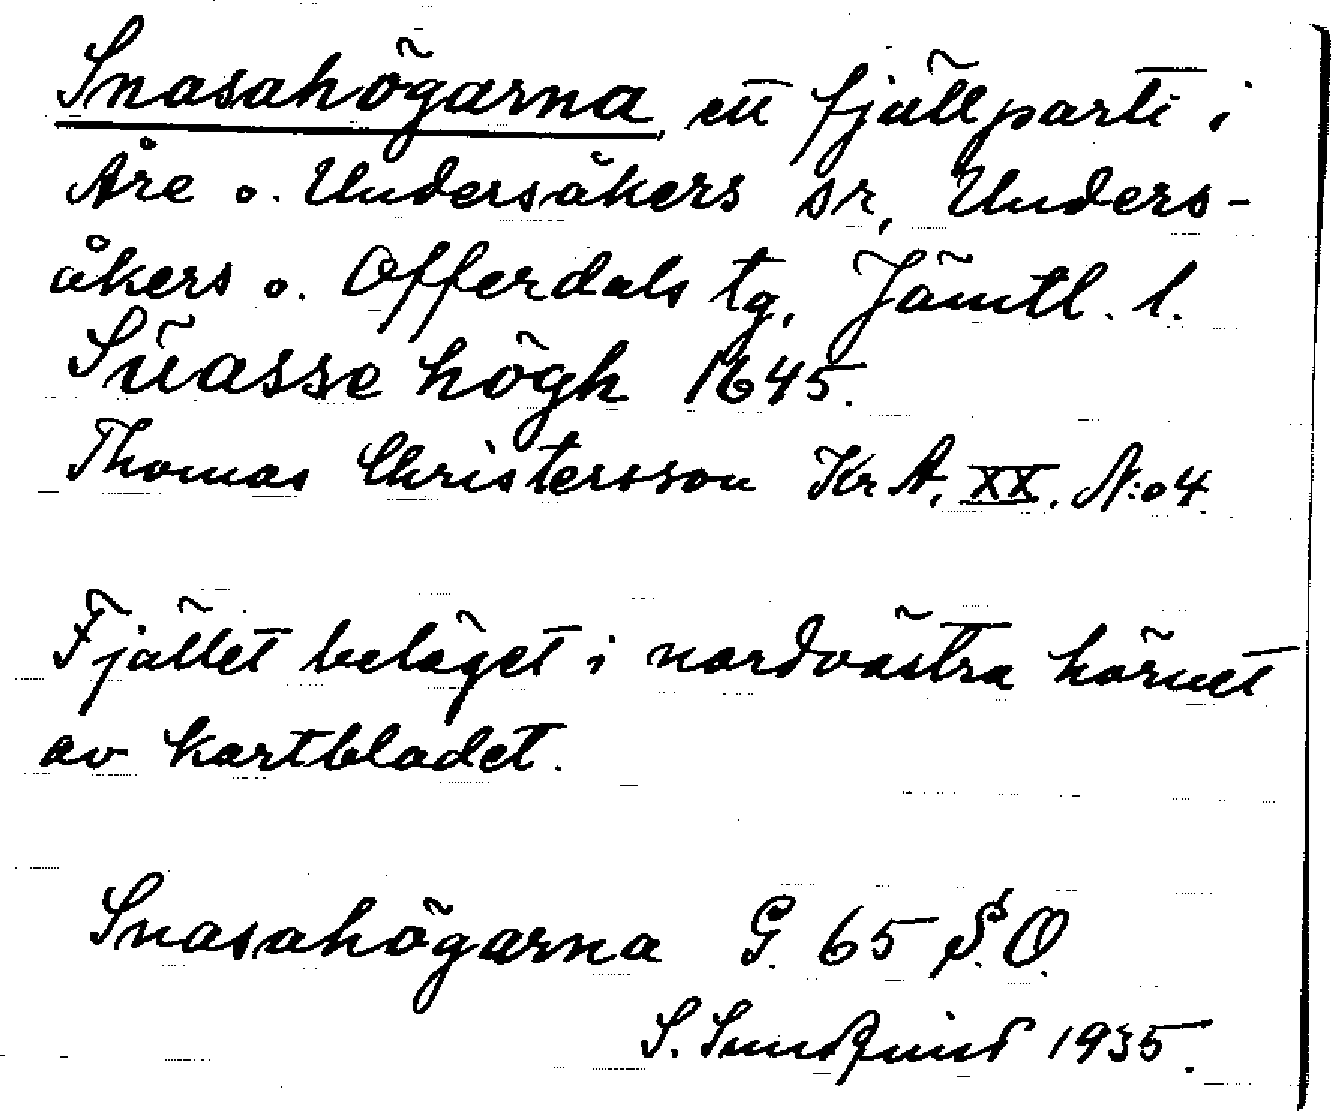 Snasahögarna, ett fjällparti i
Åre o. Undersåkers sr, Unders-
åkers o. Offerdals tg, Jämtl. l.
Süasse högh 1645.
Thomas Christersson Kr A, XX. N:o 4.
Fjället beläget i nordvästra hörnet
av kartbladet.
Snasahögarna G. 65 S.O.
S. Sundqvist 1935.